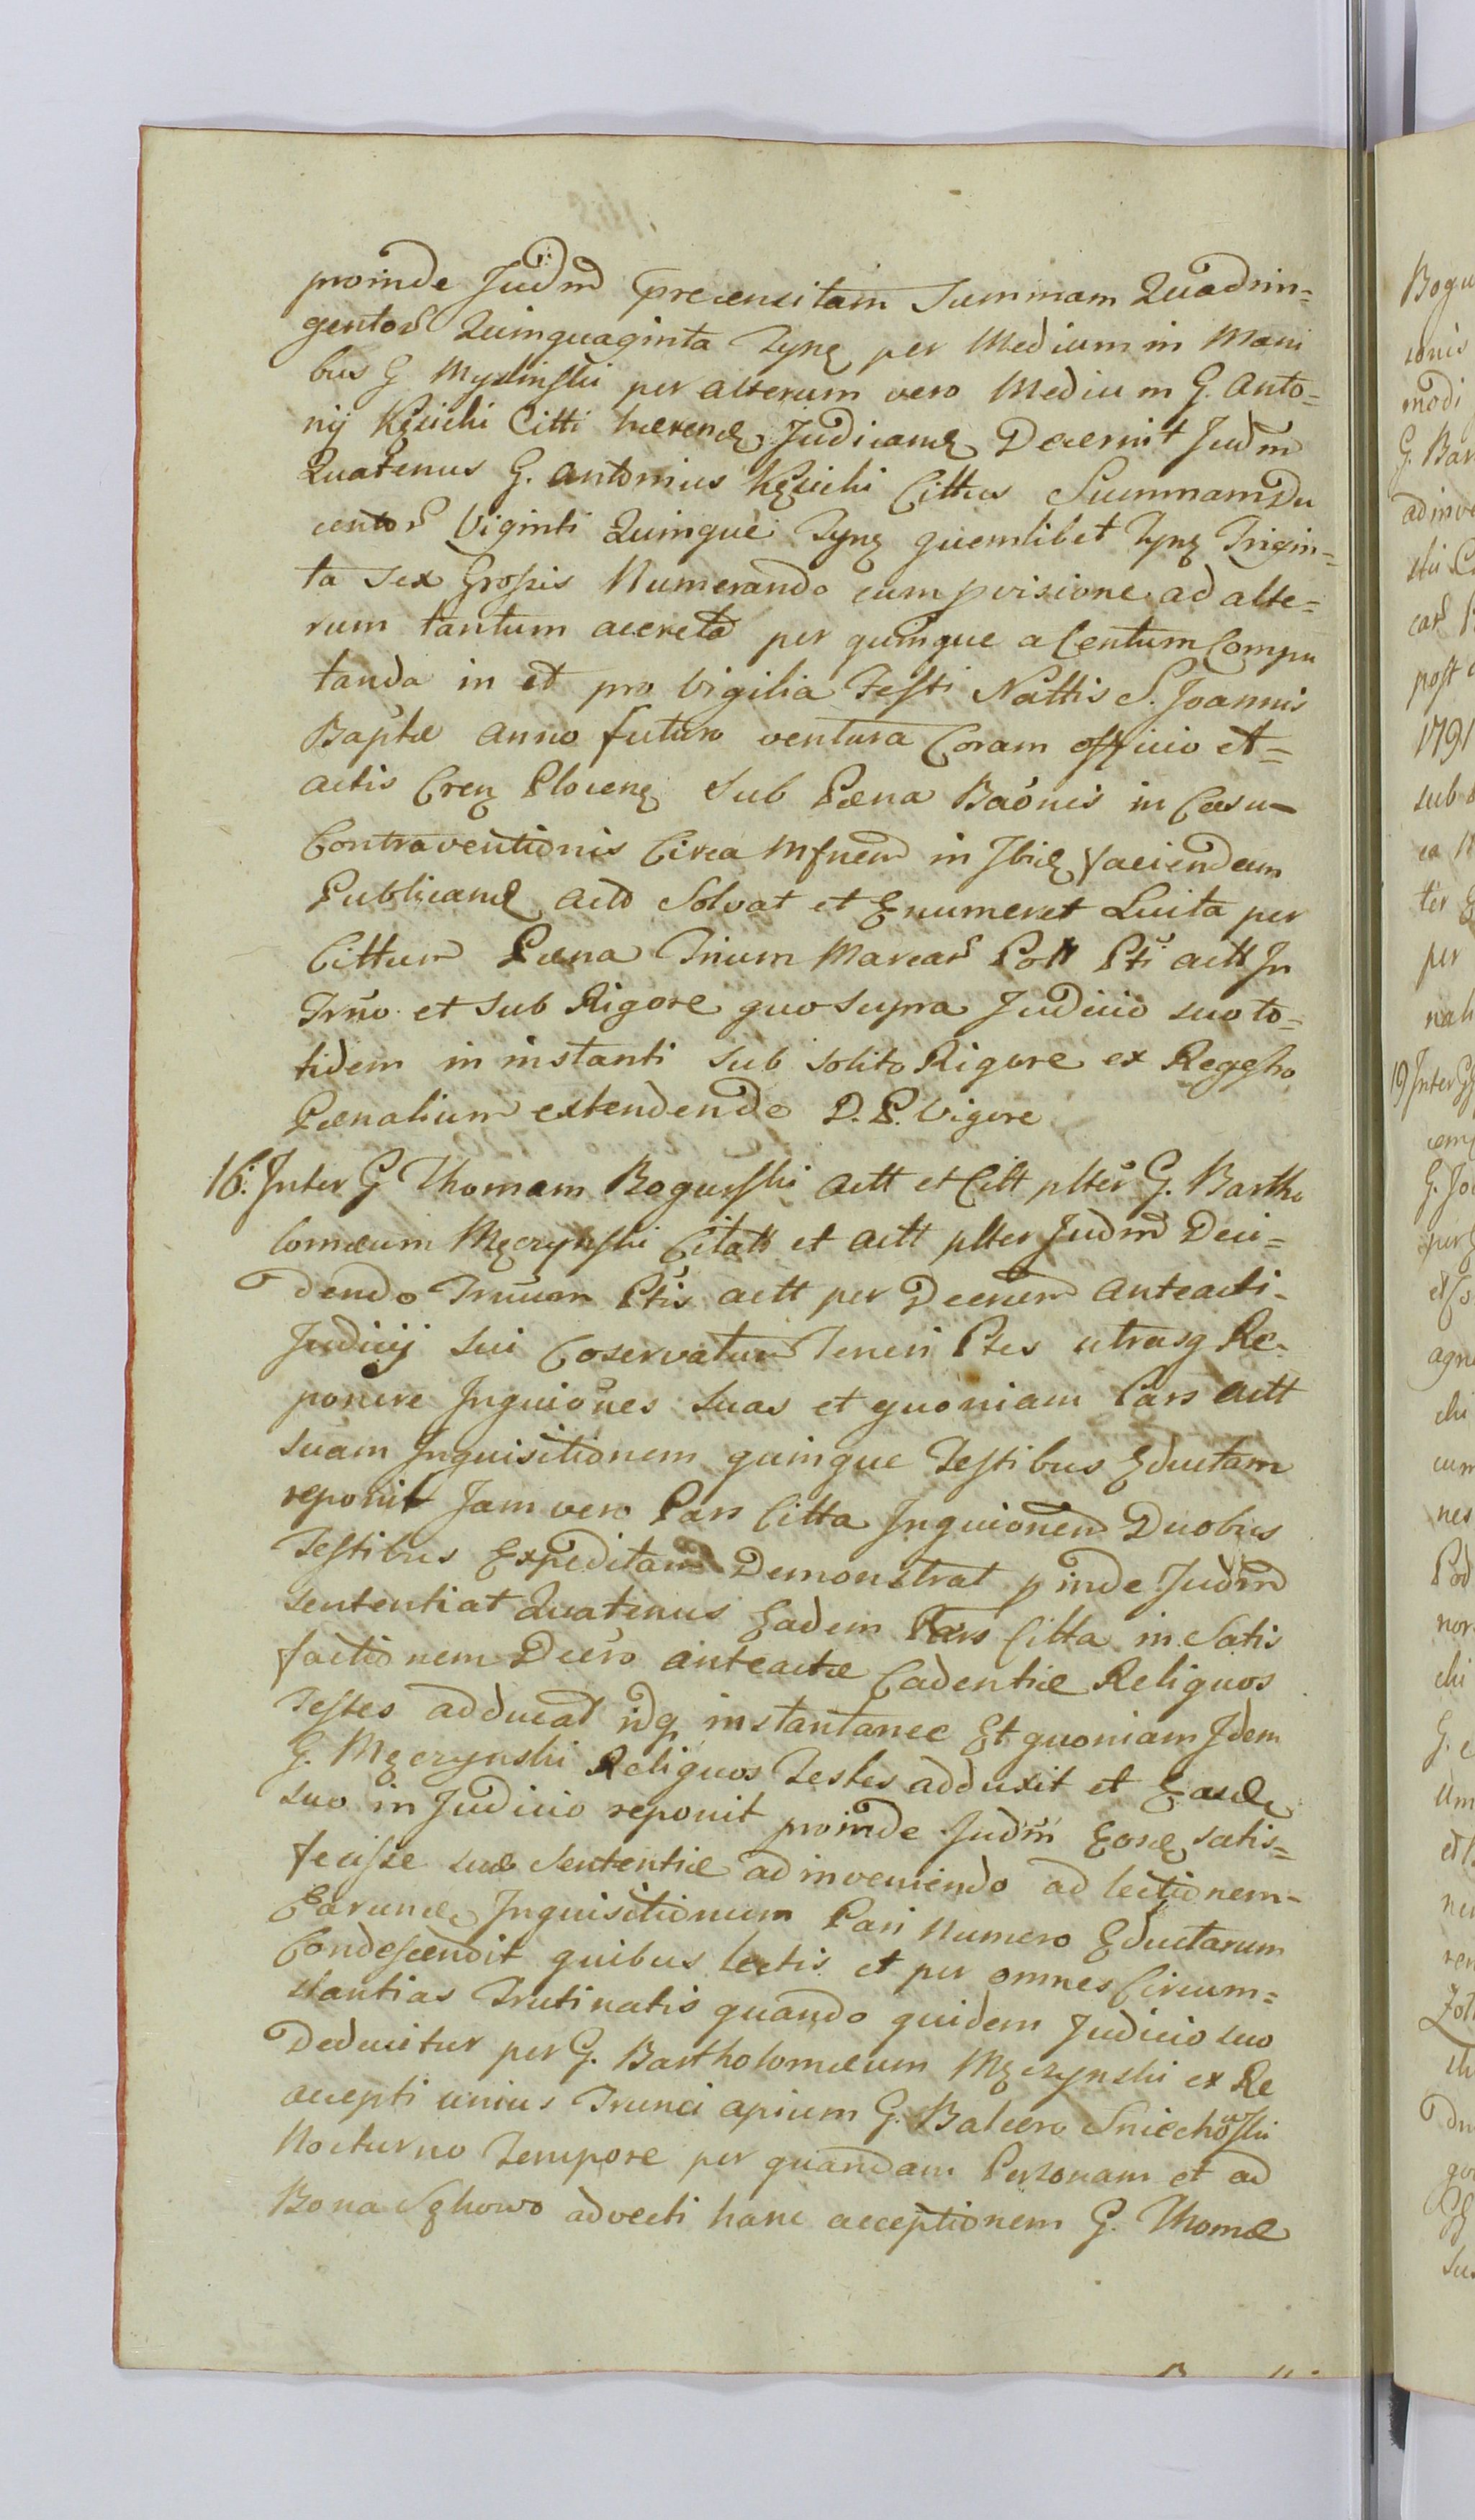 proinde Judm præcensitam Summam Quadrin=
gentor Quinquaginta Tynf per Medium in Mani
bus G Myslinski per alterum vero Medium G. Anto=
nij Kęsicki Citti hærend Judicand Decernit Judm
Quatenus G. Antonius Kęsicki Cittus Summam Du
centor Viginti Quinque Tynf quemlibet Tynf Trigin=
ta Sex Grossis Numerando cum pvisione ad alte=
rum tantum accreta per quinque a Centum Compu
tanda in et pro Vigilia Festi Nattis S. Joannis
Baptæ Anno futuro ventura Coram officio et=
actis Cren Plocen Sub Pæna Baonis in Casu
Contraventionis Circa Mfnem in Jbid faciendam
Publicand Acto Solvat et Enumeret Luita per
Cittum Pæna Trium Marcar Poll Pti actt In
Trno et Sub Rigore quo supra Judicio suo to=
tidem in instanti sub solito Rigore ex Regestro
Pænalium extendende D. P. Vigore
16. Inter G Thomam Bogurski Actt et Citt plter G. Bartho
lomæum Męczynski Citatt et Actt plter Judm Deci=
dendo Trnum Ptis actt per Decrum anteacti
Judicij sui Coservatum Teneri Ptes utrasq Re=
ponere Inquiones suas et quoniam Pars Actt
suam Inquisitionem quinque Testibus Eductam
reponit Jam vero Pars Citta Inquionem Duobus
Testibus Expeditam Demonstrat pinde Judm
sententiat Quatenus Eadem Pars Citta in Satis
factionem Decro anteactæ Cadentiæ Reliquos
Testes adducat idq instantanee Et quoniam Idem
G. Męczynski Reliquos Testes adduxit et Easd
suo in Judicio reponit proinde Judm Eosd satis=
fecisse suæ Sententiæ adinveniendo ad lectionem
Earund Inquisitionum Pari Numero Eductarum
Condescendit quibus lectis et per omnes Circum=
stantias Trutinatis quando quidem Judicio suo
Deducitur per G. Bartholomæum Męczynski ex Re
accepti unius Trunci apium G. Balcero Sniechowski
Nocturno Tempore per quandam Personam et ad
Bona advecti hanc acceptionem G. Thomæ